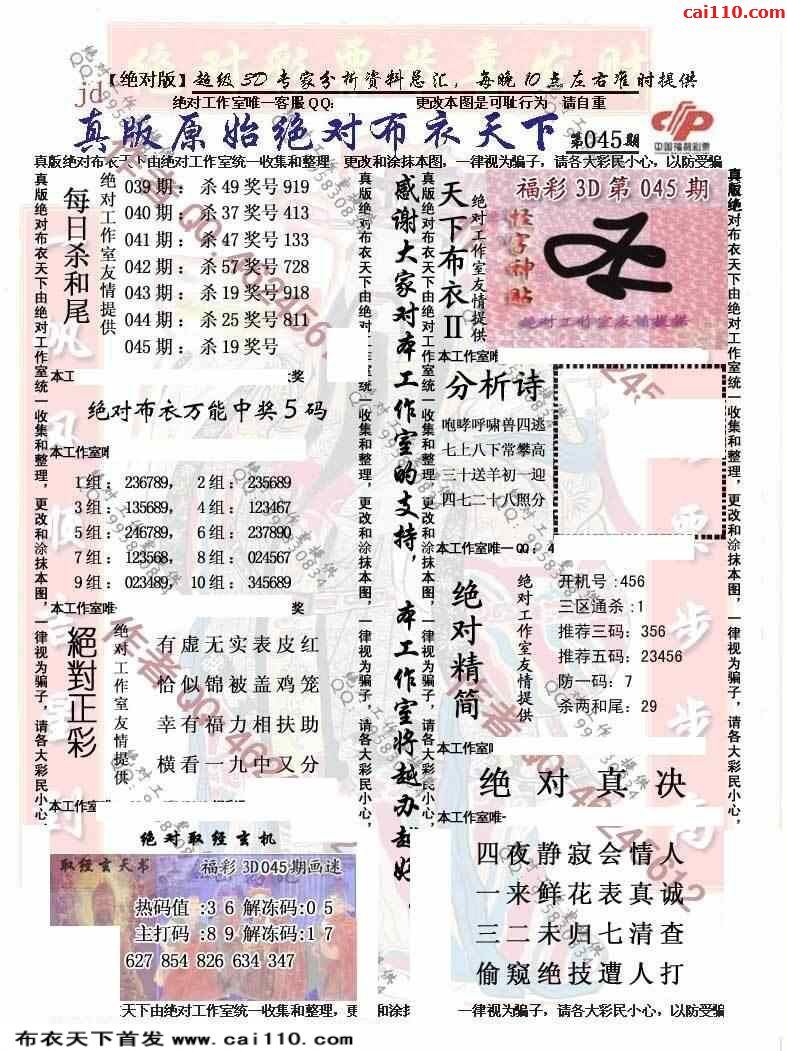 cai110.com
【绝对版】超级3D专家分析资料总汇，每晚10点左右准时提供
jd
绝对工作室唯一客服QQ: 更改本图是可耻行为 请自重
真版原始绝对布衣天下 第045期
中国福利彩票
真版绝对布衣天下由绝对工作室统一收集和整理 更改和涂抹本图，一律视为骗子，请各大彩民小心，以防受骗
每日杀和尾
绝对工作室友情提供
039期：杀49奖号919
040期：杀37奖号413
041期：杀47奖号133
042期：杀57奖号728
043期：杀19奖号918
044期：杀25奖号811
045期：杀19奖号
本工
奖
绝对布衣万能中奖5码
本工作室唯
1组：236789， 2组：235689
3组：135689， 4组：123467
5组：246789， 6组：237890
7组：123568， 8组：024567
9组：023489， 10组：345689
本工作室唯
奖
絕對正彩
绝对工作室友情提供
有虚无实表皮红
恰似锦被盖鸡笼
幸有福力相扶助
横看一九中又分
本工作室唯
绝对取经玄机
取经玄天书 福彩3D045期画迷
热码值:36解冻码:05
主打码:89解冻码:17
627 854 826 634 347
真版绝对布衣天下由绝对工作室统一收集和整理，更改和涂抹本图，一律视为骗子，请各大彩民小心，
感谢大家对本工作室的支持，本工作室将越办越好
真版绝对布衣天下由绝对工作室统一收集和整理，更改和涂抹本图，一律视为骗子，请各大彩民小心，
天下布衣II
绝对工作室友情提供
福彩3D第045期
怪字神贴
绝对工作室友情提供
本工作室唯
分析诗
咆哮呼啸兽四逃
七上八下常攀高
三十送羊初一迎
四七二十八照分
本工作室唯一QQ：4
绝对精简
绝对工作室友情提供
开机号:456
三区通杀:1
推荐三码：356
推荐五码：23456
防一码：7
杀两和尾：29
本工作室
绝对真决
本工作室唯一
四夜静寂会情人
一来鲜花表真诚
三二未归七清查
偷窥绝技遭人打
天下由绝对工作室统一收集和整理，更 和涂抹 一律视为骗子，请各大彩民小心，以防受骗
布衣天下首发 www.cai110.com